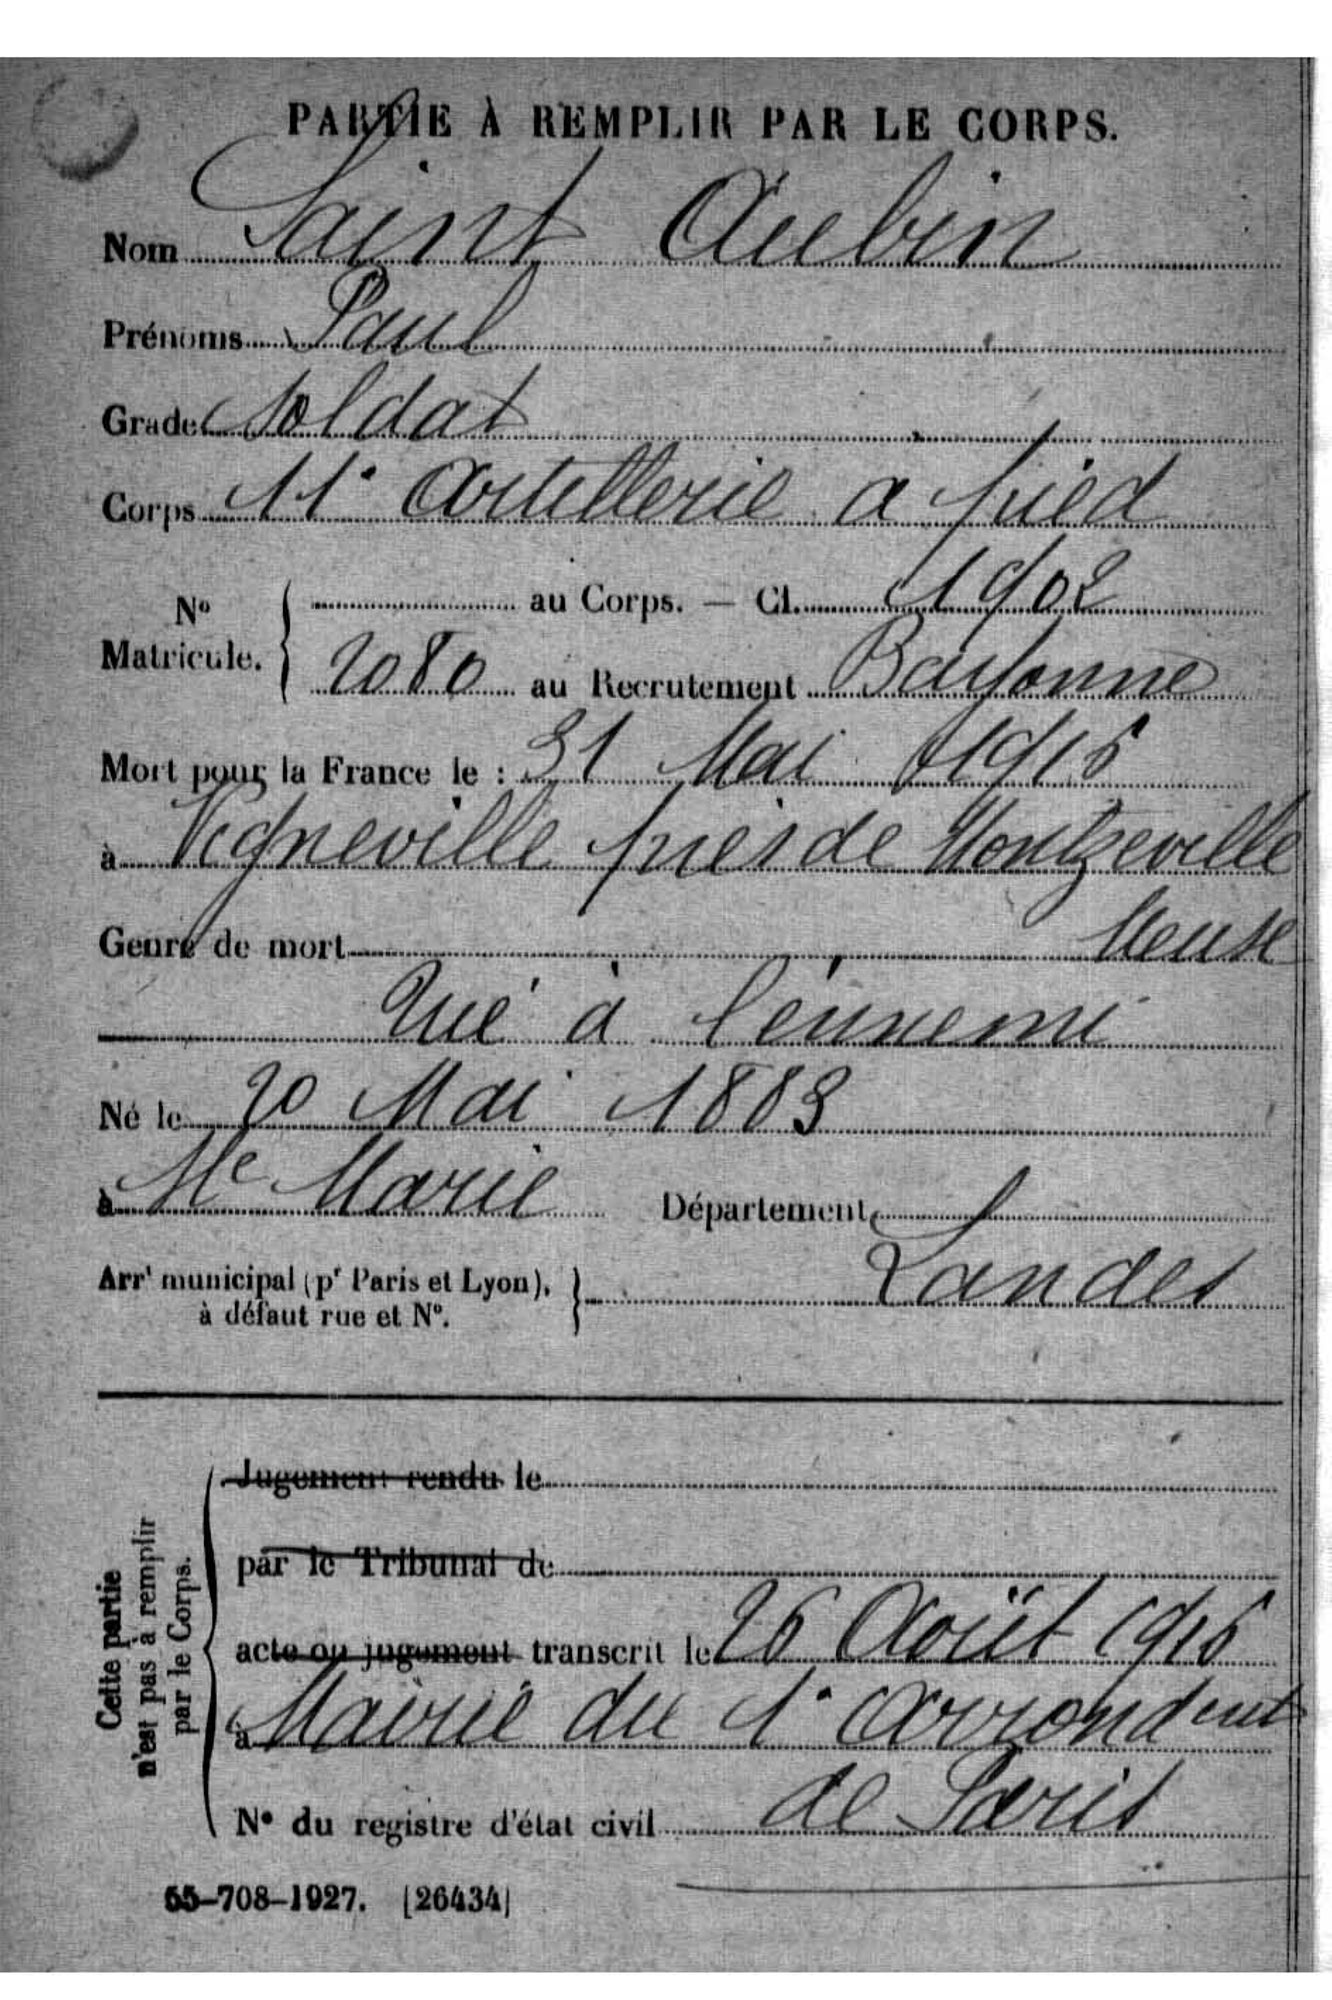 PARTIE À REMPLIR PAR LE CORPS.
Nom Saint Aubin
Prénoms Paul
Grade Soldat
Corps 11e Artillerie a pied
No Matricule. { au Corps. — Cl. 1902
2080 au Recrutement Bayonne
Mort pour la France le : 31 Mai 1916
à Vigneville près de Montzeville
Meuse
Genre de mort
Tué à l'ennemi
Né le 20 Mai 1883
à Ste Marie Département
Landes
Arrt municipal (pr Paris et Lyon), }
à défaut rue et No.
Cette partie
n'est pas à remplir
par le Corps.
Jugement rendu le
par le Tribunal de
acte ou jugement transcrit le 26 Août 1916
à Mairie du 1e arrondment
de Paris
No du registre d'état civil
55-708-1927. [26434]